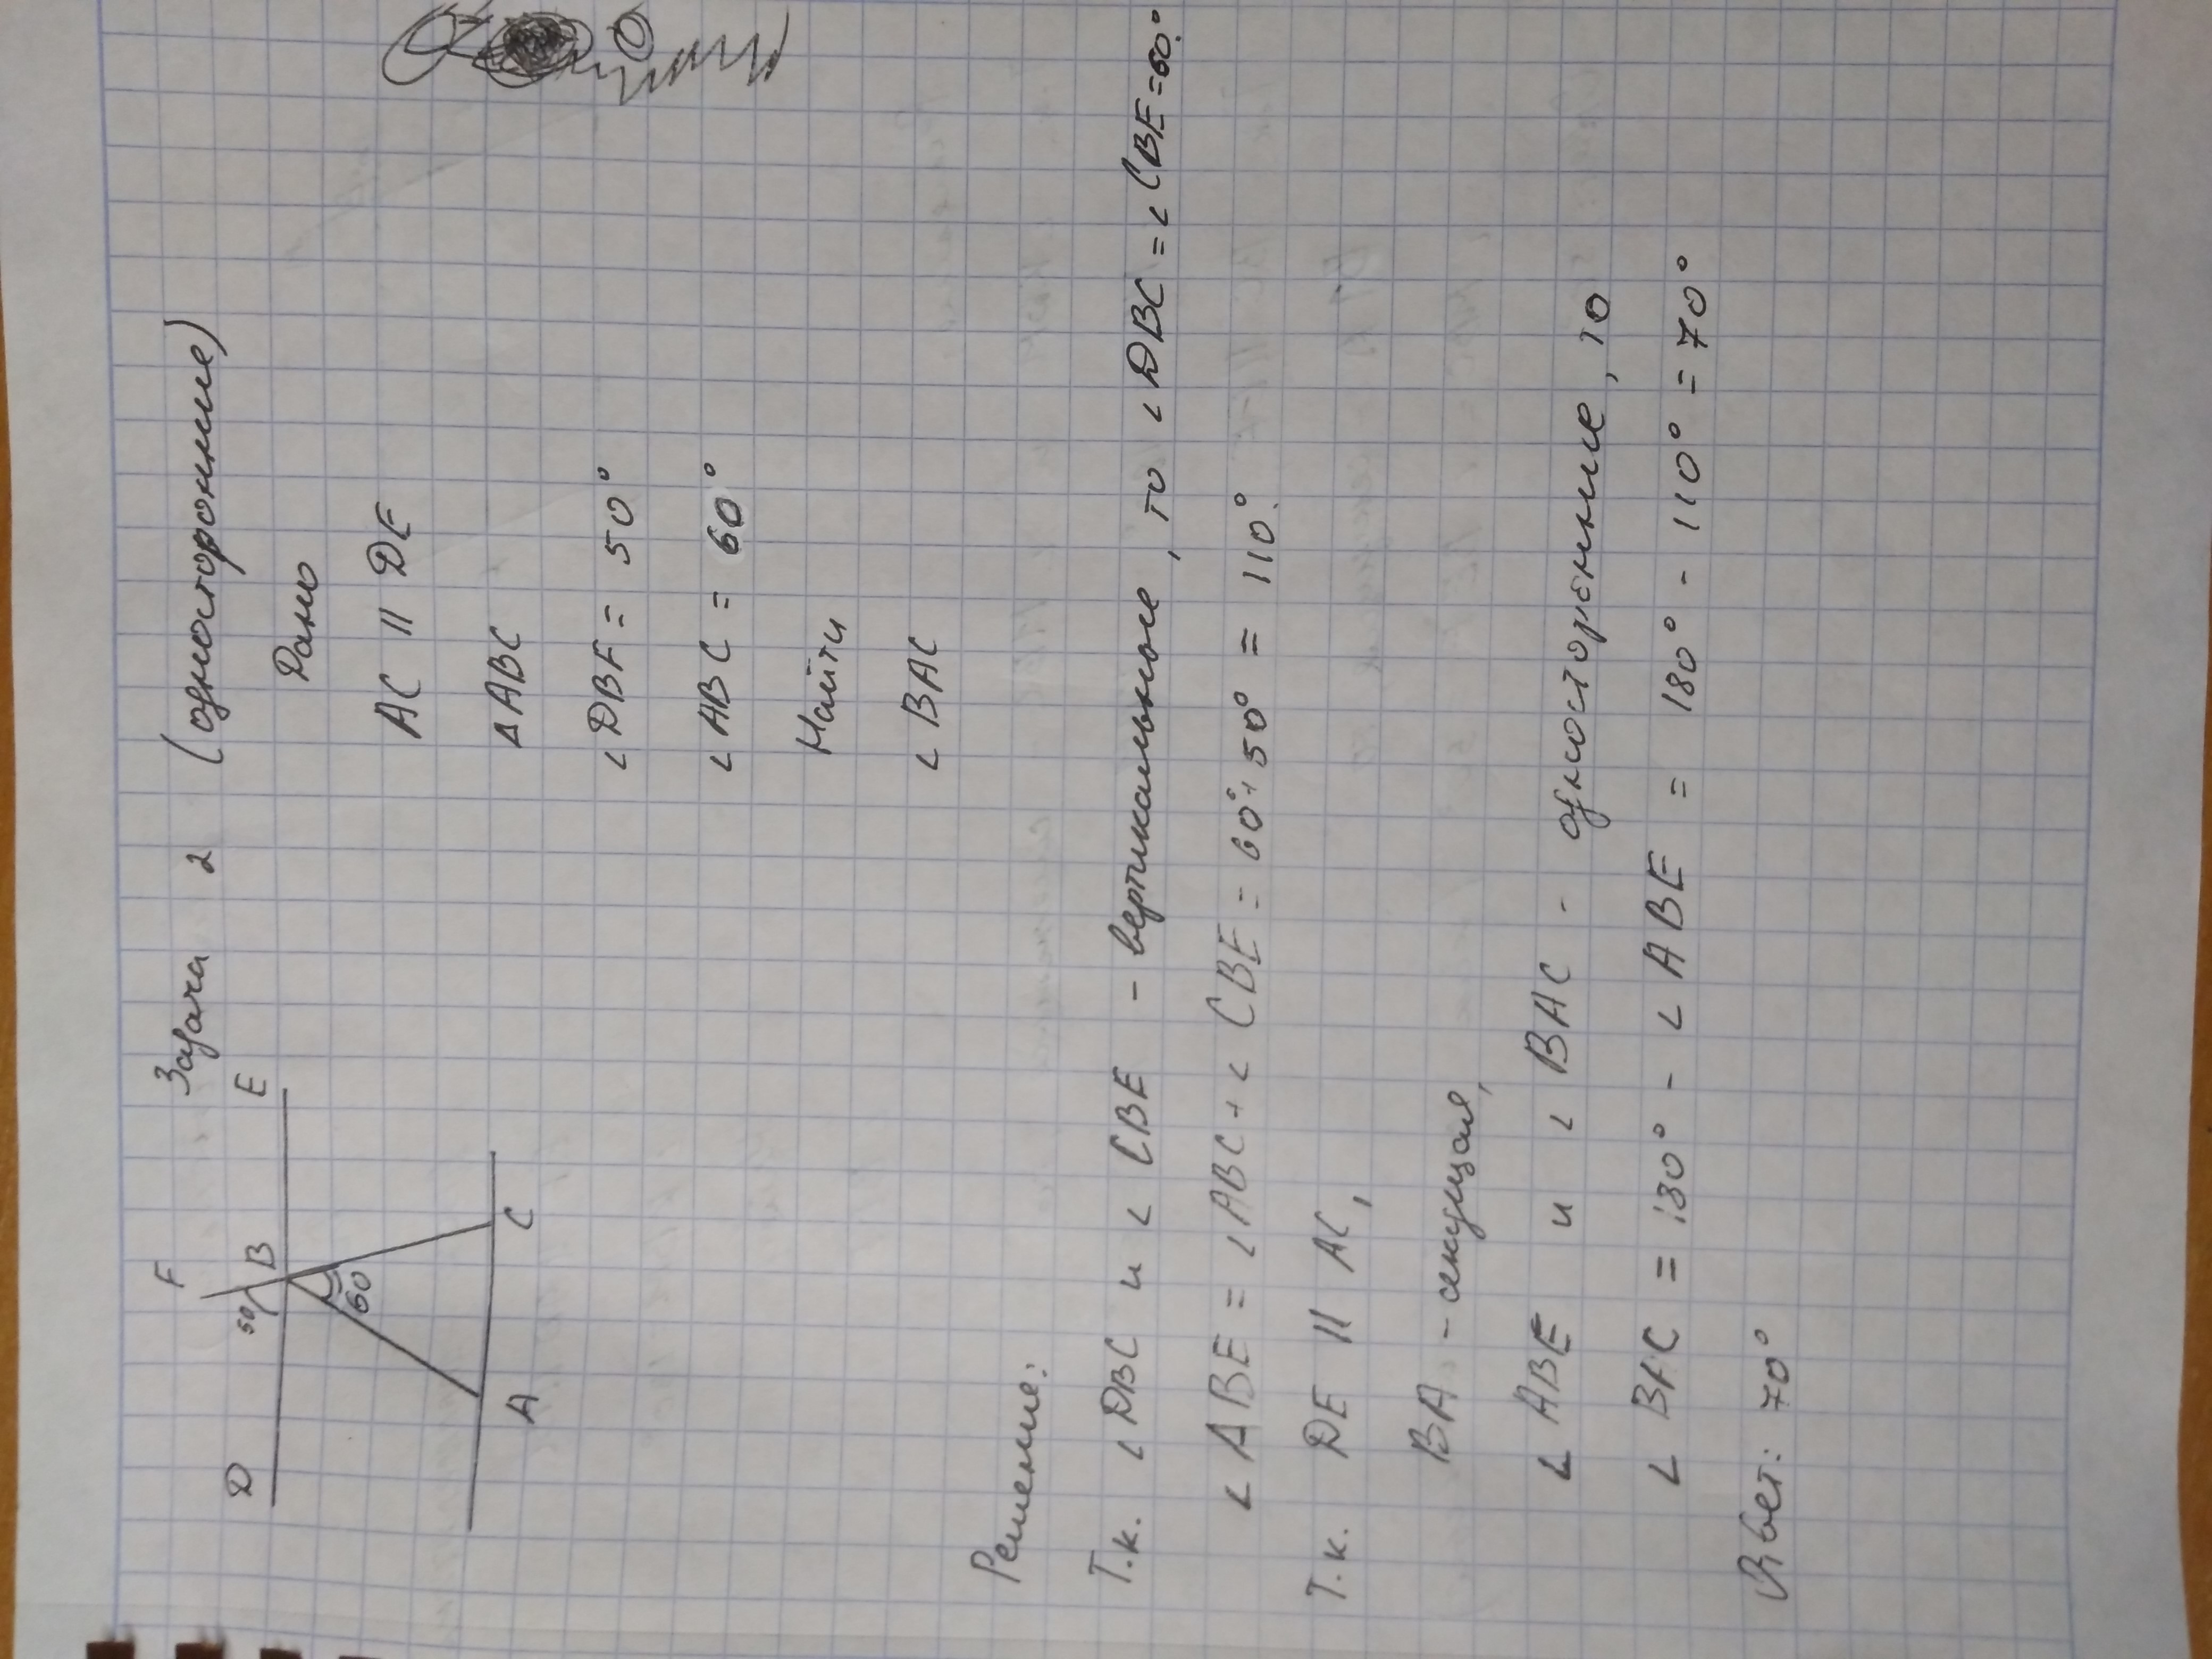 Задача 2 (односторонние)
F
D 50 B E
60
A C
Дано
AC || DE
△ABC
∠DBF = 50°
∠ABC = 60°
Найти
∠BAC
Решение:
Т.к. ∠DBC и ∠CBE - вертикальные, то ∠DBC = ∠CBE = 60°.
∠ABE = ∠ABC + ∠CBE = 60° + 50° = 110°.
Т.к. DE || AC,
BA - секущая,
∠ABE и ∠BAC - односторонние, то
∠BAC = 180° - ∠ABE = 180° - 110° = 70°
Ответ: 70°